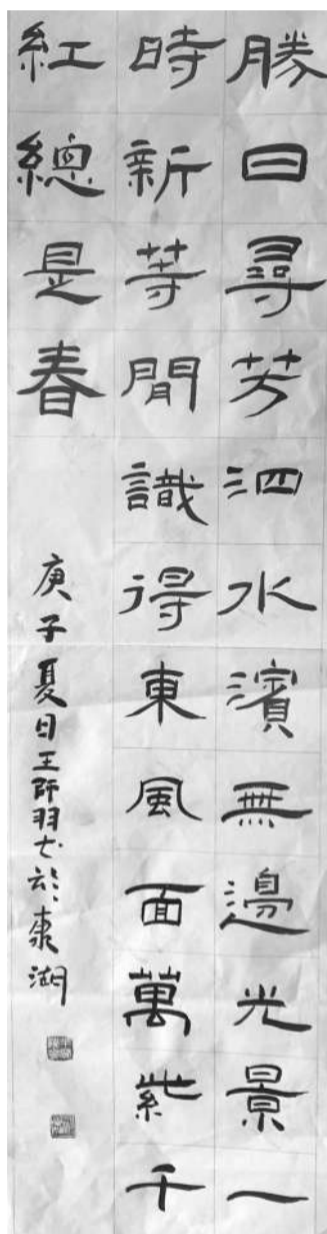 勝日尋芳泗水濱無邊光景一
時新等閒識得東風面萬紫千
紅總是春
庚子夏日王師羽书於東湖